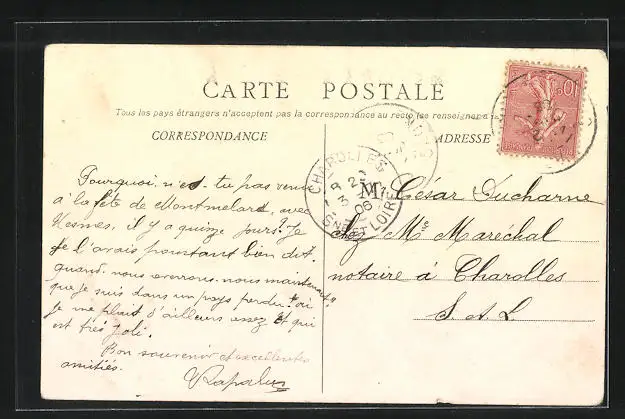 CARTE POSTALE
Tous les pays étrangers n'acceptent pas la correspondance au recto (se renseigner à la
CORRESPONDANCE
ADRESSE
CHAROLLES
8 2
3
06
SNE ET LOIRE
M César Ducharne
chez Me Maréchal
notaire à Charolles
S. et L.
Pourquoi n'es-tu pas venu
à la fête de Montmelard, avec
il y a quinze jours? Je
te l'avais pourtant bien dit.
quand nous reverrons-nous maintenant?
que je suis dans un pays perdu! où
je me plait d'ailleurs assez et qui
est très joli.
Bon souvenir et excellentes
amitiés.